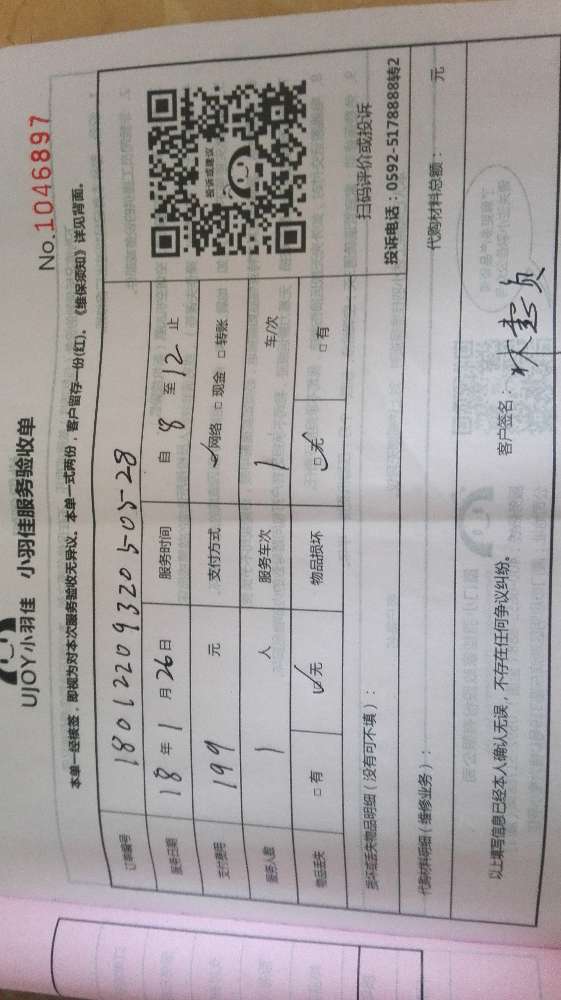 UJOY小羽佳 小羽佳服务验收单
No.1046897
本单一经核签，即视为对本次服务验收无异议，本单一式两份，客户留存一份(红)。《维保须知》详见背面。
订单编号 180122093205-05-28
服务日期 18年1月26日 服务时间 自8至12止
支付费用 199元 支付方式 ✓网络 □现金 □转账
服务人数 1人 服务车次 1车/次
物品丢失 □有 ☑无 物品损坏 ☑无 □有
投诉或建议
扫码评价或投诉
投诉电话：0592-5178888转2
损坏或丢失物品明细（没有可不填）：
代购材料明细（维修业务）： 代购材料总额： 元
以上填写信息已经本人确认无误，不存在任何争议纠纷。
客户签名：